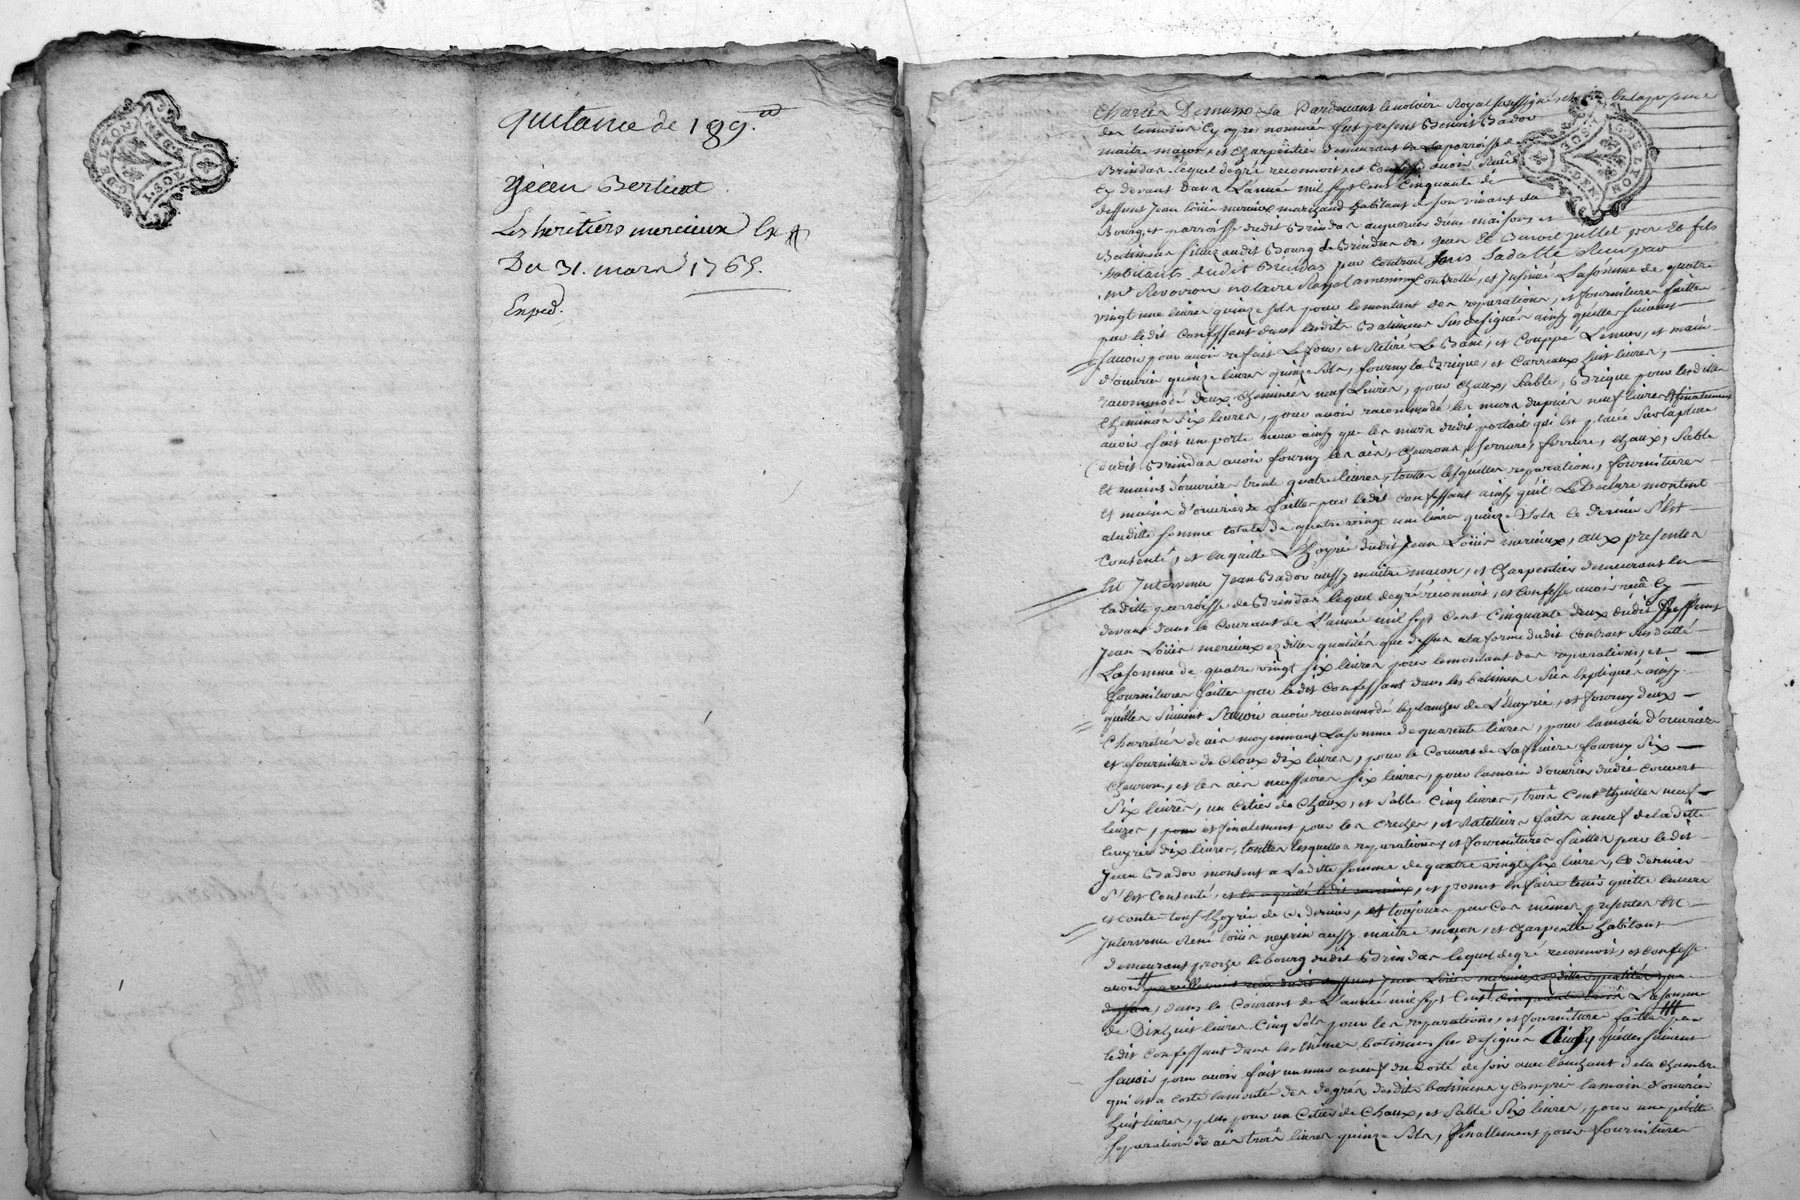 GEN. DE LYON
quitance de 189.ᵗᵗ
Les heritiers mercieux
Du 31. mars 1765.
Exped.
Pardevant le notaire Royal soussigné, et
des temoins cy apres nommés fut present Benoit Badou
maitre maçon, et charpentier demeurant en la parroisse de
Brindas lequel de gré reconnoit et avoir
cy devant dans l'année mil sept cent cinquante de
deffunt Jean Loüis mercieux marchand habitant de son vivant du
Bourg, et parroisse dudit Brindas acquereur d'une maison, et
Batiments scituez audit Bourg de Brindas de Jean Et Benoit Jullet pere Et fils
habitants dudit Brindas par contrat
notaire Royal Controllé, et Insinué La somme de quatre
vingt une livres quinze sols pour le montant des reparations, et fournitures faittes
par ledit confessant dans lesdits Batiments sus designés ainsy qu'elles suivent
sauoir pour auoir refait Le four, et Retiré Le Banc, et Couppé Le mur, et main
d'ouvrier quinze livres quinze sols, fourny la Brique, et Carreaux huit livres,
racommodé deux cheminées neuf Livres, pour chaux, sable, Brique pour lesdittes
cheminées six livres, pour avoir racommodé les murs du puits neuf livres
avoir fait un porte neuve ainsy que les murs dudit portail qui est placée sur la place
dudit Brindas avoir fourny les ais, chevrons, serrure, ferrure, chaux, sable
Et mains d'ouvriers trente quatre livres, touttes lesquelles reparations, fournitures
Et mains d'ouvriers faittes par ledit confessant ainsy qu'il Le Declare montent
a laditte somme totale de quatre vingt une livres quinze sols ce dernier s'Est
Contenté, et en quitte L'hoyrie dudit Jean Loüis mercieux, aux presentes
Est Intervenu Jean Badou aussy maitre maçon, et charpentier demeurant en
laditte parroisse de Brindas lequel de gré reconnoit, et confesse avoir reçû cy
devant dans le Courant de L'année mil sept cent cinquante deux dudit deffunt
Jean Loüis mercieux ez dittes qualités que dessus a la forme dudit contrat sus datté
La somme de quatre vingt six livres pour le montant des reparations, et
fournitures faittes par ledit confessant dans les batiments sus Expliqués ainsy
qu'elles suivent sauoir avoir racommodé le plancher de L'Ecuyrie, et fourny deux
charretées de ais moyennant La somme de quarente livres, pour la main d'ouvriers
et fourniture de cloux dix livres, pour le Couvert de La fourny six
chevrons, et les ais necessaires six livres, pour la main d'ouvrier dudit couvert
six livres, un de chaux, et sable cinq livres, trois cent thuilles neuf
livres, pour et finalement pour les creches, et Ratelliers faits a neuf de laditte
Ecuyrie dix livres, touttes lesquelles reparations, et fournitures faittes par ledit
Jean Badou montent a Laditte somme de quatre vingt six livres, Ce dernier
s'Est Contenté, et en a quitté ledit mercieux, et promet En faire tenir quitte Envers
et contre tous L'hoyrie de ce dernier, et toujours par ces mêmes presentes Est
Intervenu René Loüis neyrin aussy maitre maçon, et charpentier habitant
demeurant proche le bourg dudit Brindas lequel de gré reconnoit, et confesse
avoir pareillement reçu dudit deffunt Jean Loüis mercieux ez dittes qualités que
dessus, dans le Courant de L'année mil sept Cent cinquante trois La somme
de Dixhuit livres cinq sols pour les reparations, et fourniture faittes par
ledit confessant dans les mêmes batiments sus designés Ainsy qu'elles suivent
sauoir pour avoir fait un mur a neuf du costé de soir avec de la chambre
qui est a costé la montée des degrés desdits batiments y compris la main d'ouvrier
huit livres, plus pour un de chaux, et sable six livres, pour une petitte
separation de ais trois livres quinze sols, finallement pour fournitures